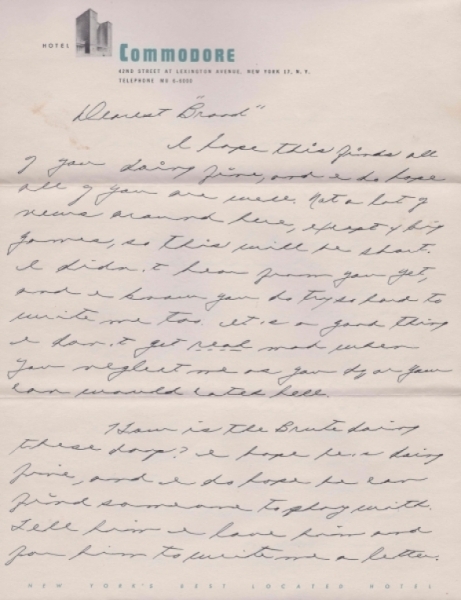 HOTEL
COMMODORE
42ND STREET AT LEXINGTON AVENUE, NEW YORK 17, N.Y.
TELEPHONE MU 6-6000
Dearest "Brood"
I hope this finds all
of you doing fine, and I do hope
all of you are well. Not a lot of
news around here, except big
games, so this will be short.
I didn't hear from you yet,
and I know you do try so hard to
write me too. It is a good thing
I don't get real mad when
you neglect me as you do, or you
would catch hell.
How is the Brute doing
these days? I hope he is doing
fine, and I do hope he can
find someone to play with.
Tell him I love him and
for him to write me a letter.
NEW YORK'S BEST LOCATED HOTEL